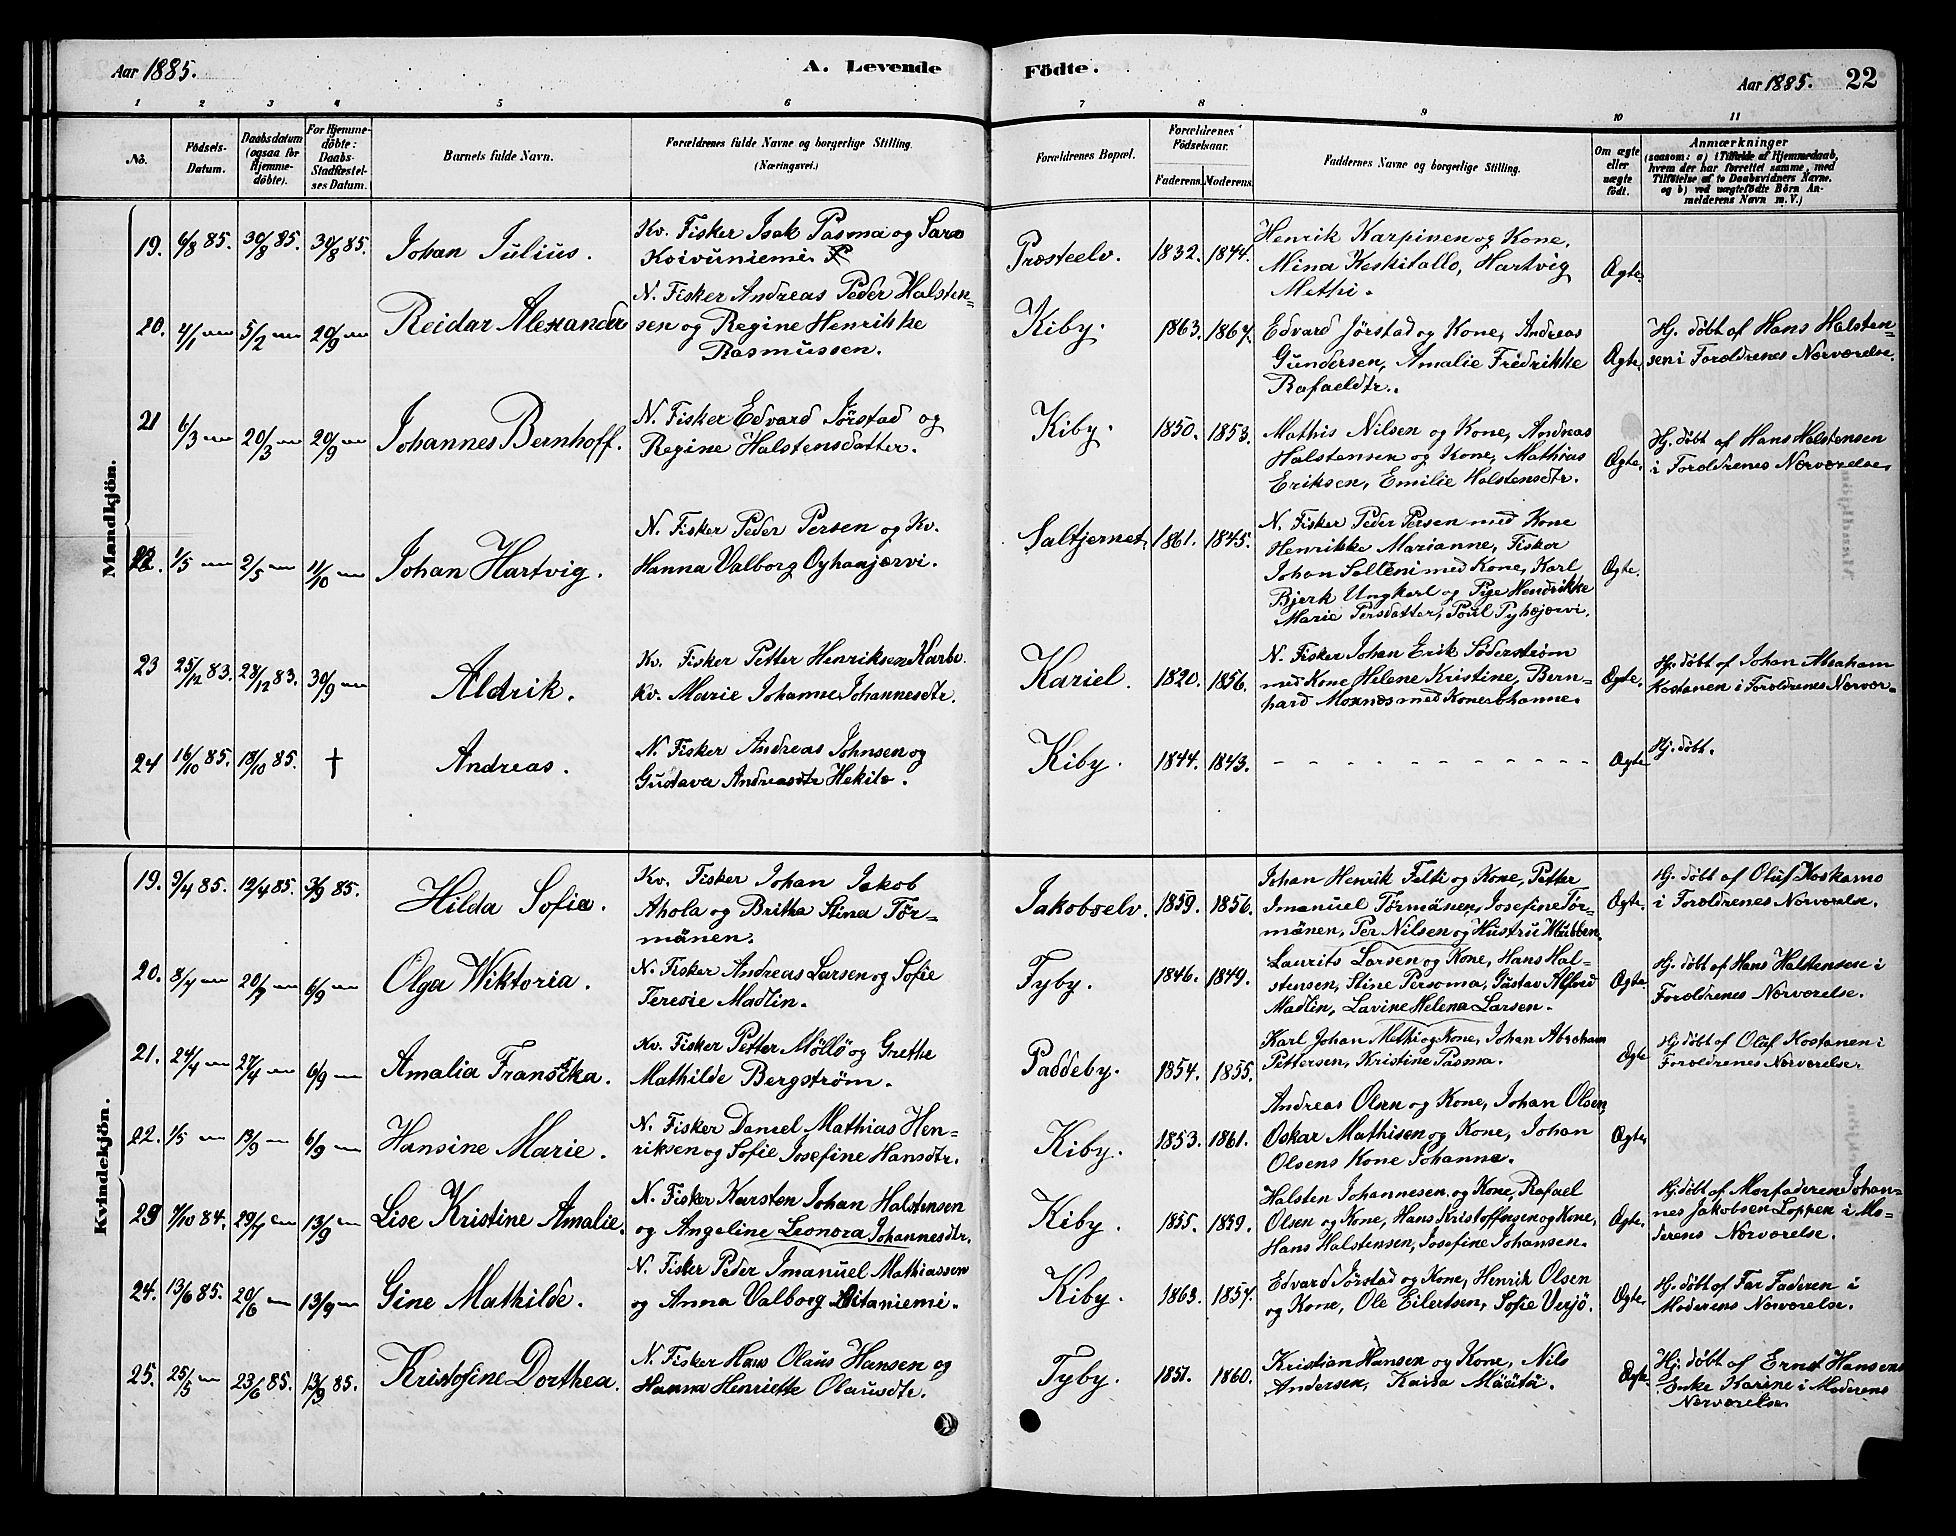 Aar 1885.
A. Levende
Födte.
Aar 1885. 22
1 2 3 4 5 6 7 8 9 10 11
No.
Födsels-
Datum.
Daabsdatum
(ogsaa for
Hjemme-
döbte).
For Hjemme-
döbte:
Daabs-
Stadfæstel-
ses Datum.
Barnets fulde Navn.
Forældrenes fulde Navne og borgerlige Stilling.
(Næringsvei.)
Forældrenes Bopæl.
Forældrenes
Födselsaar.
Faderens. Moderens.
Faddernes Navne og borgerlige Stilling.
Om ægte
eller
uægte
födt.
Anmærkninger
(saasom: a) i Tilfælde af Hjemmedaab,
hvem der har forrettet samme, med
Tilföielse af to Daabsvidners Navne.
og b) ved uægtefödte Börn An-
melderens Navn m. V.)
Mandkjön.
19. 6/8 85. 30/8 85. 30/8 85. Johan Julius.
Kv. Fisker Isak Pasma og Sara
Koivuniemi.
Præsteelv. 1832. 1844.
Henrik Karpinen og Kone,
Mina Keskitallo, Hartvig
Methi.
Ægte.
20. 4/1 — 5/2 — 20/9 — Reidar Alexander
N. Fisker Andreas Peder Halsten-
sen og Regine Henrikke
Rasmussen.
Kiby. 1863. 1867.
Edvard Jørstad og Kone, Andreas
Gundersen, Amalie Fredrikke
Rafaeldtr.
Ægte.
Hj. døbt af Hans Halsten-
sen i Forældrenes Nærværelse.
21 6/3 — 20/3 — 20/9 — Johannes Bernhoff.
N. Fisker Edvard Jørstad og
Regine Halstensdatter.
Kiby. 1850. 1853.
Mathis Nilsen og Kone, Andreas
Halstensen og Kone, Mathias
Eriksen, Emilie Halstensdtr.
Ægte.
Hj. døbt af Hans Halstensen
i Forældrenes Nærværelse.
22. 1/5 — 2/5 — 11/10 — Johan Hartvig.
N. Fisker Peder Persen og Kv.
Hanna Valborg Oyhanjærvi.
Saltjernet. 1861. 1845.
N. Fisker Peder Persen med Kone
Henrikke Marianne, Fisker
Johan Salteni med Kone, Karl
Bjerk Ungkarl og Pige Hendrikke
Marie Persdatter, Poul Pyhæjærvi.
Ægte.
23 25/12 83. 28/12 83. 30/9 — Aldrik.
Kv. Fisker Petter Henriksen Karbo.
Kv. Marie Johanne Johannesdtr.
Kariel. 1820. 1856.
N. Fisker Johan Erik Søderstrøm
med Kone Helene Kristine, Bern-
hard Moxnæs med Kone Johanne.
Ægte.
Hj. døbt af Johan Abraham
Kostanen i Forældrenes Nærvær-
24 16/10 85. 18/10 85. † Andreas.
N. Fisker Andreas Johnsen og
Gustava Andreasdtr Hekilo.
Kiby. 1844. 1843.
- - - - - - - - - - - -
Ægte
Hj. døbt.
Kvindekjön.
19. 9/4 85. 12/4 85. 3/9 85. Hilda Sofia.
Kv. Fisker Johan Jakob
Ahola og Britha Stina Tør-
mänen.
Jakobselv. 1859. 1856.
Johan Henrik Felti og Kone, Petter
Imanuel Törmänen, Josefine Tør-
mänen, Per Nilsen og Hustru
Ægte.
Hj. døbt af Oluf Koskamo
i Forældrenes Nærværelse.
20. 8/7 — 20/7 — 6/9 — Olga Wiktoria.
N. Fisker Andreas Larsen og Sofie
Teresie Madlin.
Tyby. 1846. 1849.
Laurits Larsen og Kone, Hans Hal-
stensen, Stine Persoma, Gustav Alfred
Madlin, Lavine Helena Larsen.
Ægte.
Hj. døbt af Hans Halstensen i
Forældrenes Nærværelse.
21. 24/4 — 27/4 — 6/9 — Amalia Franscika.
Kv. Fisker Petter Möllö og Grethe
Mathilde Bergström.
Paddeby. 1854. 1855.
Karl Johan Methi og Kone, Johan Abraham
Pettersen, Kristine Pasma.
Ægte
Hj. døbt af Oluf Kostanen i
Forældrenes Nærværelse.
22. 1/5 — 13/9 — 6/9 — Hansine Marie.
N. Fisker Daniel Mathias Hen-
riksen og Sofie Josefine Hansdtr.
Kiby. 1853. 1861.
Andreas Olsen og Kone, Johan Olsen,
Oskar Mathisen og Kone, Johan
Olsens Kone Johanna.
Ægte.
23 7/10 84. 29/7 — 13/9 — Lise Kristine Amalie.
N. Fisker Karsten Johan Halstensen
og Angeline Leonora Johannesdtr.
Kiby. 1855. 1859.
Halsten Johannesen og Kone, Rafael
Olsen og Kone, Hans Kristoffersen og Kone,
Hans Halstensen, Josefine Johansen.
Ægte.
Hj. døbt af Morfaderen Johan-
nes Jakobsen Loppen i Mo-
derens Nærværelse.
24. 13/6 85. 20/6 — 13/9 — Gine Mathilde.
N. Fisker Peder Imanuel Mathiassen
og Anna Valborg Pitaniemi.
Kiby. 1863. 1857.
Edvard Jørstad og Kone, Henrik Olsen
og Kone, Ole Eilertsen, Sofie Verjö.
Ægte.
Hj. døbt af Far Faderen i
Moderens Nærværelse.
25. 25/5 — 23/6 85. 13/9 85. Kristofine Dorthea.
N. Fisker Hans Olaus Hansen og
Hanna Henriette Olausdtr.
Tyby. 1851. 1860.
Kristian Hansen og Kone, Nils
Andersen, Kaisa Määtä.
Ægte.
Hj. døbt af Ernst Hansens
Enke Karine i Moderens
Nærværelse